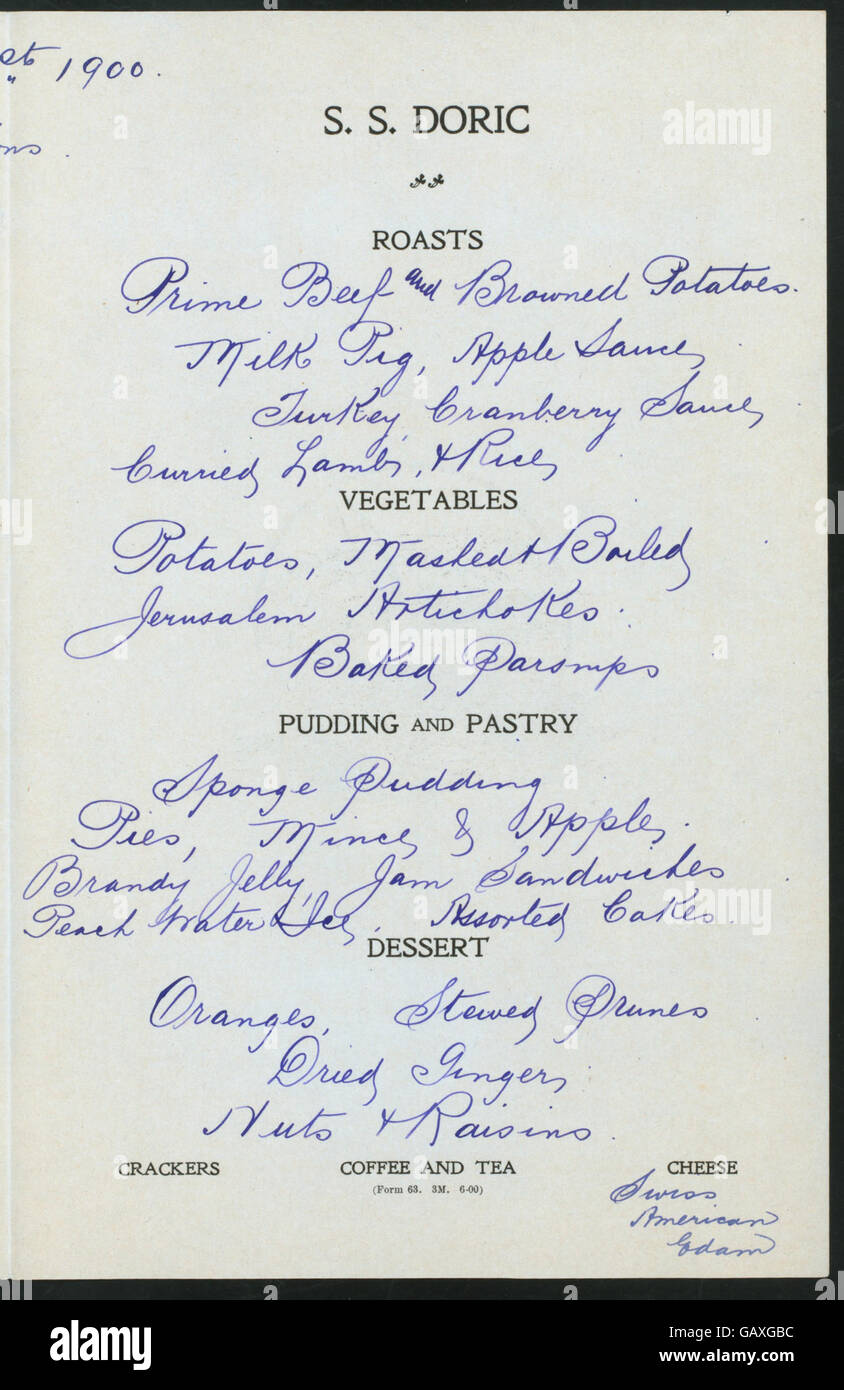 1900.
S. S. DORIC
ROASTS
Prime Beef and Browned Potatoes.
Milk Pig, Apple Sauce
Turkey, Cranberry Sauce
Curried Lamb, & Rice
VEGETABLES
Potatoes, Mashed & Boiled
Jerusalem Artichokes.
Baked Parsnips
PUDDING AND PASTRY
Sponge Pudding
Pies, Mince & Apple.
Brandy Jelly, Jam Sandwiches
Peach Water Ice, Assorted Cakes.
DESSERT
Oranges, Stewed Prunes
Dried Ginger
Nuts & Raisins.
CRACKERS COFFEE AND TEA CHEESE
(Form 63. 3M. 6-00)
Swiss
American
Edam
alamy stock photo
GAXGBC
www.alamy.com